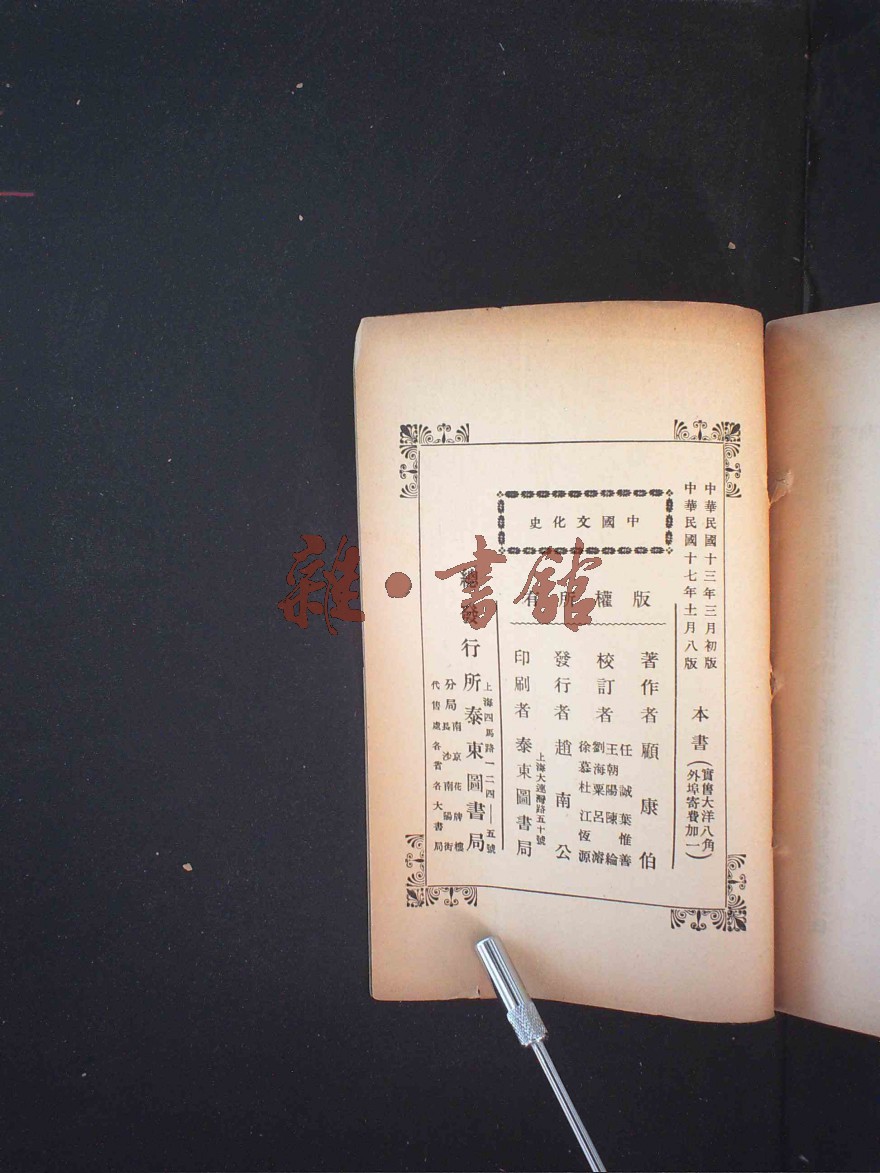 中華民國十三年三月初版
中華民國十七年十一月八版
本書
實售大洋八角
外埠寄費加一
中國文化史
版權所有
著作者 顧康伯
校訂者
任誠 葉惟善
王朝陽 陳綸
劉海粟 呂濬
徐慕杜 江恆源
發行者 趙南公
上海大連灣路五十號
印刷者 泰東圖書局
上海四馬路一二四——五號
總發行所 泰東圖書局
分局 南京花牌樓
長沙南陽街
代售處 各省各大書局
雜·書館